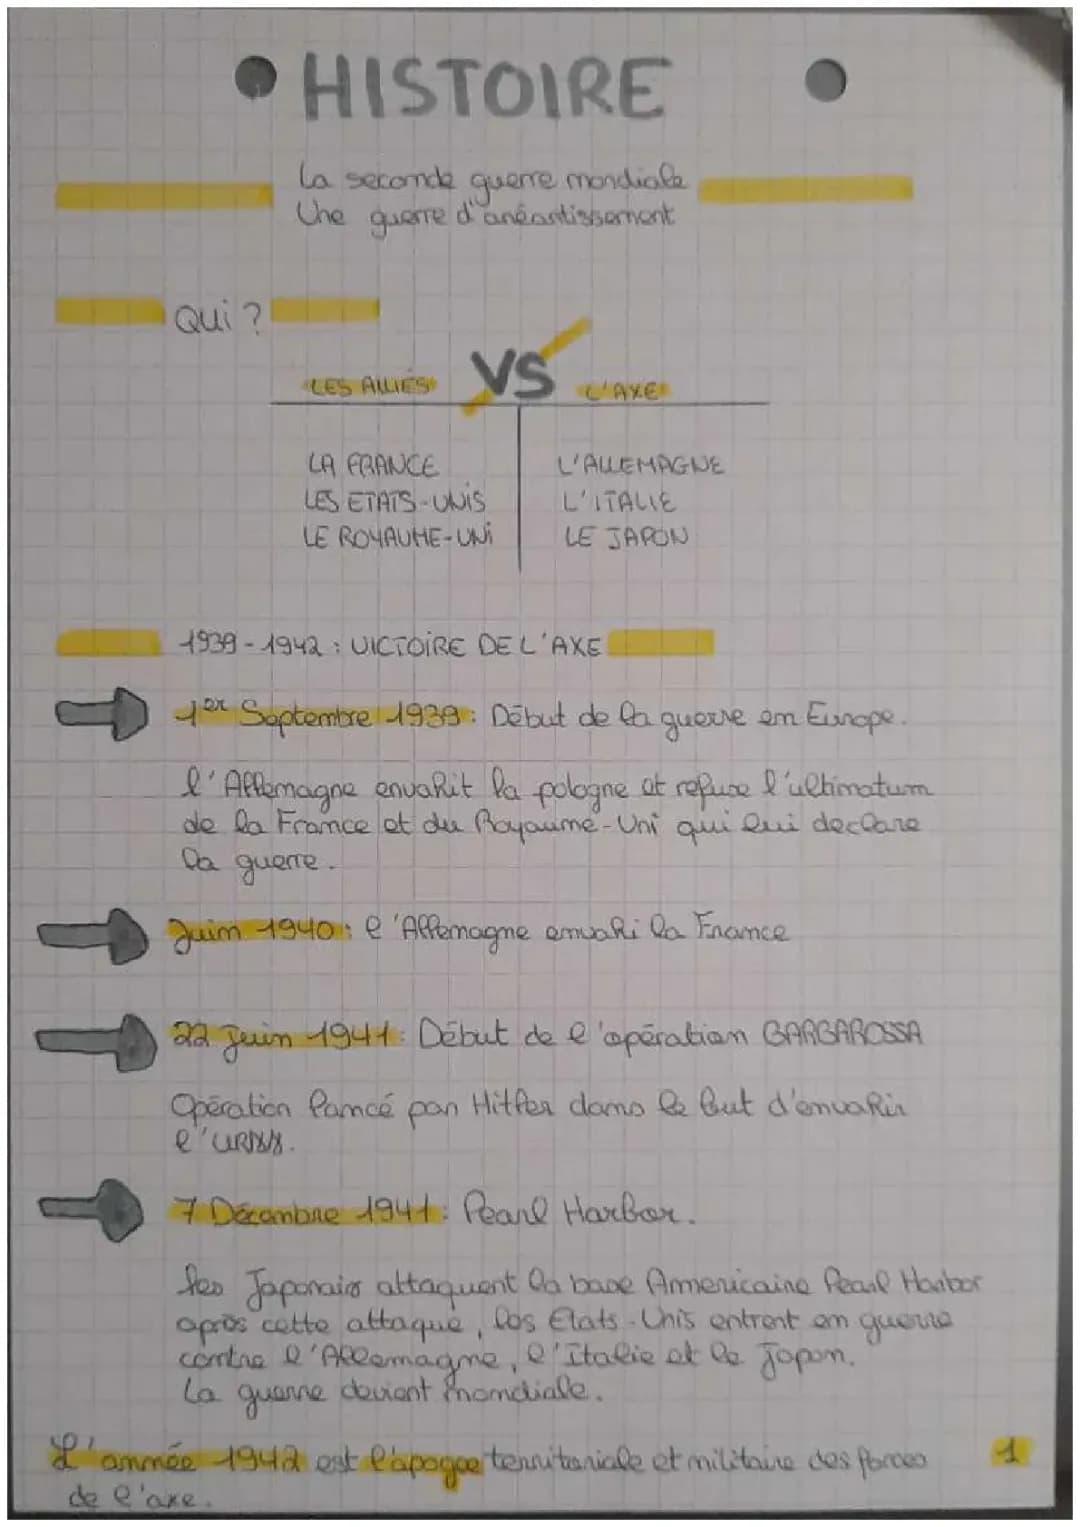 HISTOIRE
La seconde guerre mondiale
Une guerre d'anéantissement
Qui ?
VS
LES ALLIÉS
L'AXE
LA FRANCE
L'ALLEMAGNE
LES ETATS-UNIS
L'ITALIE
LE ROYAUME-UNI
LE JAPON
1939-1942 : VICTOIRE DE L'AXE
1er Septembre 1939 : Début de la guerre en Europe.
l'Allemagne envahit la pologne et refuse l'ultimatum
de la France et du Royaume-Uni qui lui declare
la guerre.
Juin 1940 : l'Allemagne envahi la France
22 Juin 1941 : Début de l'opération BARBAROSSA
Opération lancé par Hitler dans le but d'envahir
l'URSS.
7 Décembre 1941 : Pearl Harbor.
les Japonais attaquent la base Américaine Pearl Harbor
après cette attaque, les Etats-Unis entrent en guerre
contre l'Allemagne, l'Italie et le Japon.
La guerre devient mondiale.
L'année 1942 est l'apogée territoriale et militaire des forces
de l'axe.
1